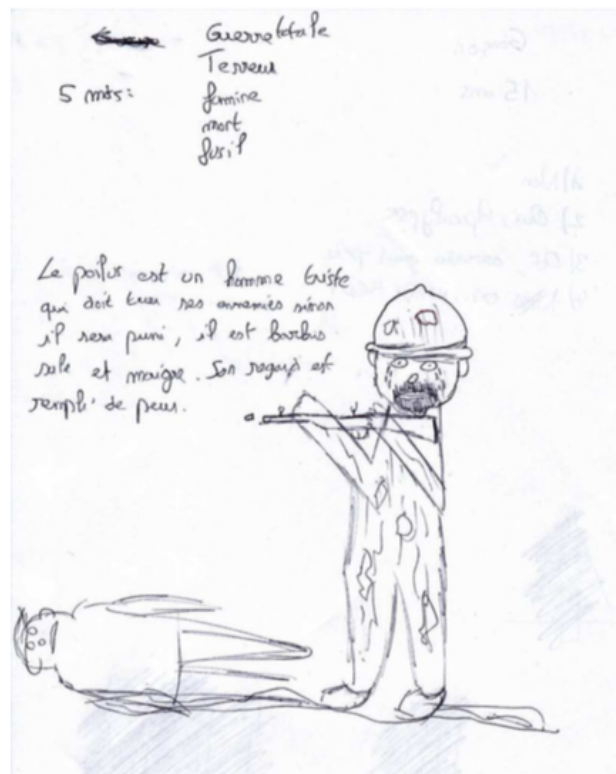 Guerre totale
Terreur
5 mots:
famine
mort
fusil
Le poilus est un homme triste
qui doit tuer ses ennemies sinon
il sera puni, il est barbus
sale et maigre. Son regard est
rempli de peur.
Garçon
15 ans
1) Non
2)
3)
4)